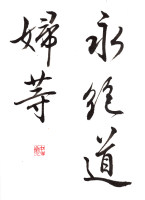 永絕道
婦等